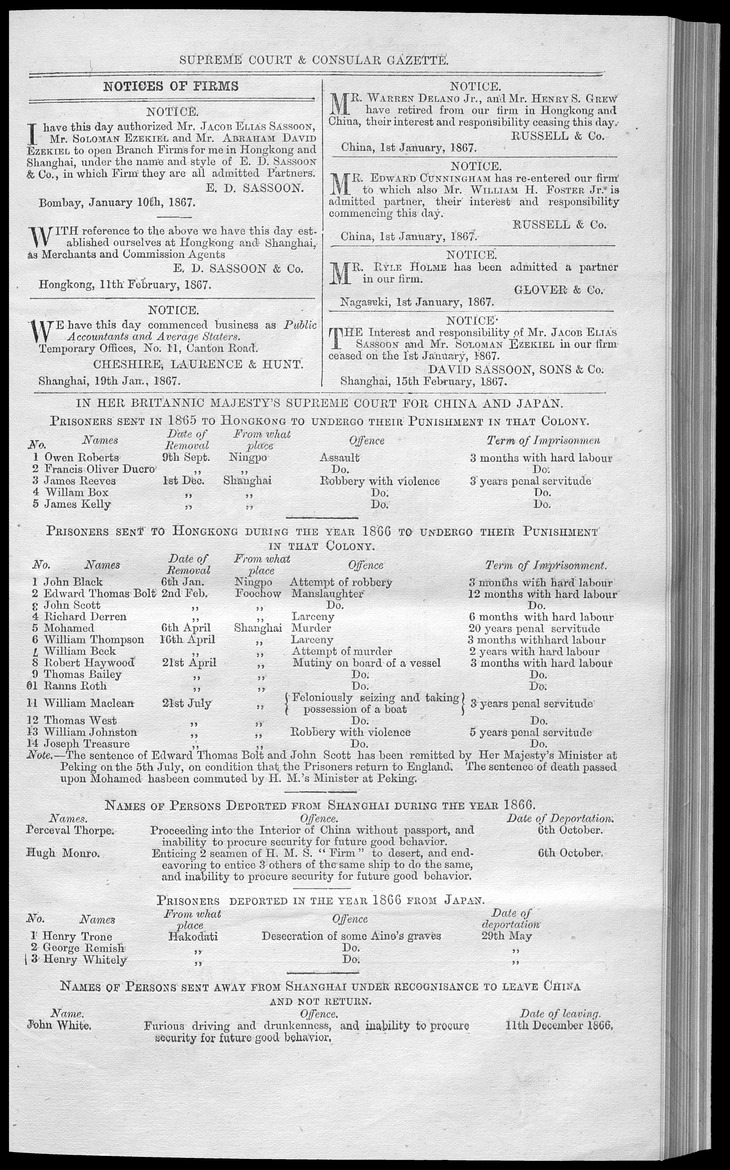 SUPREME COURT & CONSULAR GAZETTE.
NOTICES OF FIRMS
NOTICE.
I have this day authorized Mr. JACOB ELIAS SASSOON,
Mr. SOLOMAN EZEKIEL and Mr. ABRAHAM DAVID
EZEKIEL to open Branch Firms for me in Hongkong and
Shanghai, under the name and style of E. D. SASSOON
& Co., in which Firm they are all admitted Partners.
E. D. SASSOON.
Bombay, January 10th, 1867.
WITH reference to the above we have this day est-
ablished ourselves at Hongkong and Shanghai,
as Merchants and Commission Agents
E. D. SASSOON & Co.
Hongkong, 11th February, 1867.
NOTICE.
WE have this day commenced business as Public
Accountants and Average Staters.
Temporary Offices, No. 11, Canton Road.
CHESHIRE, LAURENCE & HUNT.
Shanghai, 19th Jan., 1867.
NOTICE.
MR. WARREN DELANO Jr., and Mr. HENRY S. GREW
have retired from our firm in Hongkong and
China, their interest and responsibility ceasing this day.
RUSSELL & Co.
China, 1st January, 1867.
NOTICE.
MR. EDWARD CUNNINGHAM has re-entered our firm
to which also Mr. WILLIAM H. FOSTER Jr. is
admitted partner, their interest and responsibility
commencing this day.
RUSSELL & Co.
China, 1st January, 1867.
NOTICE.
MR. RYLE HOLME has been admitted a partner
in our firm.
GLOVER & Co.
Nagasuki, 1st January, 1867.
NOTICE.
THE Interest and responsibility of Mr. JACOB ELIAS
SASSOON and Mr. SOLOMAN EZEKIEL in our firm
ceased on the 1st January, 1867.
DAVID SASSOON, SONS & Co.
Shanghai, 15th February, 1867.
IN HER BRITANNIC MAJESTY'S SUPREME COURT FOR CHINA AND JAPAN.
PRISONERS SENT IN 1865 TO HONGKONG TO UNDERGO THEIR PUNISHMENT IN THAT COLONY.
No. Names Date of Removal From what place Offence Term of Imprisonmen
1 Owen Roberts 9th Sept. Ningpo Assault 3 months with hard labour
2 Francis Oliver Ducro ,, ,, Do. Do.
3 James Reeves 1st Dec. Shanghai Robbery with violence 3 years penal servitude
4 Willam Box ,, ,, Do. Do.
5 James Kelly ,, ,, Do. Do.
PRISONERS SENT TO HONGKONG DURING THE YEAR 1866 TO UNDERGO THEIR PUNISHMENT
IN THAT COLONY.
No. Names Date of Removal From what place Offence Term of Imprisonment.
1 John Black 6th Jan. Ningpo Attempt of robbery 3 months with hard labour
2 Edward Thomas Bolt 2nd Feb. Foochow Manslaughter 12 months with hard labour
3 John Scott ,, ,, Do. Do.
4 Richard Derren ,, ,, Larceny 6 months with hard labour
5 Mohamed 6th April Shanghai Murder 20 years penal servitude
6 William Thompson 16th April ,, Larceny 3 months withhard labour
William Beck ,, ,, Attempt of murder 2 years with hard labour
8 Robert Haywood 21st April ,, Mutiny on board of a vessel 3 months with hard labour
9 Thomas Bailey ,, ,, Do. Do.
01 Ranns Roth ,, ,, Do. Do.
11 William Maclean 21st July ,, {Feloniously seizing and taking possession of a boat} 3 years penal servitude
12 Thomas West ,, ,, Do. Do.
13 William Johnston ,, ,, Robbery with violence 5 years penal servitude
14 Joseph Treasure ,, ,, Do. Do.
Note.—The sentence of Edward Thomas Bolt and John Scott has been remitted by Her Majesty's Minister at
Peking on the 5th July, on condition that the Prisoners return to England. The sentence of death passed
upon Mohamed hasbeen commuted by H. M.'s Minister at Peking.
NAMES OF PERSONS DEPORTED FROM SHANGHAI DURING THE YEAR 1866.
Names. Offence. Date of Deportation.
Perceval Thorpe. Proceeding into the Interior of China without passport, and 6th October.
inability to procure security for future good behavior.
Hugh Monro. Enticing 2 seamen of H. M. S. "Firm" to desert, and end- 6th October.
eavoring to entice 3 others of the same ship to do the same,
and inability to procure security for future good behavior.
PRISONERS DEPORTED IN THE YEAR 1866 FROM JAPAN.
No. Names From what place Offence Date of deportation
1 Henry Trone Hakodati Desecration of some Aino's graves 29th May
2 George Remish ,, Do. ,,
3 Henry Whitely ,, Do. ,,
NAMES OF PERSONS SENT AWAY FROM SHANGHAI UNDER RECOGNISANCE TO LEAVE CHINA
AND NOT RETURN.
Name. Offence. Date of leaving.
John White. Furious driving and drunkenness, and inability to procure 11th December 1866.
security for future good behavior.